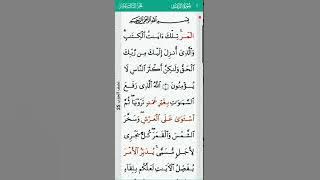 بِسْمِ ٱللَّهِ ٱلرَّحْمَٰنِ ٱلرَّحِيمِ
الٓمٓرۚ تِلْكَ ءَايَٰتُ ٱلْكِتَٰبِۗ
وَٱلَّذِىٓ أُنزِلَ إِلَيْكَ مِن رَّبِّكَ
ٱلْحَقُّ وَلَٰكِنَّ أَكْثَرَ ٱلنَّاسِ لَا
يُؤْمِنُونَ ١ ٱللَّهُ ٱلَّذِى رَفَعَ
ٱلسَّمَٰوَٰتِ بِغَيْرِ عَمَدٍ تَرَوْنَهَاۖ ثُمَّ
ٱسْتَوَىٰ عَلَى ٱلْعَرْشِۖ وَسَخَّرَ
ٱلشَّمْسَ وَٱلْقَمَرَۖ كُلٌّ يَجْرِى
لِأَجَلٍ مُّسَمًّىۚ يُدَبِّرُ ٱلْأَمْرَ
يُفَصِّلُ ٱلْءَايَٰتِ لَعَلَّكُم بِلِقَآءِ